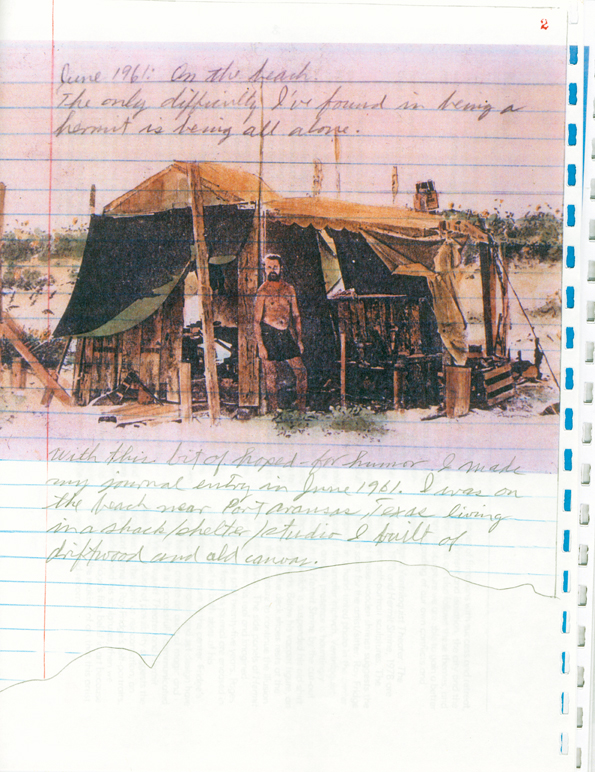 2
June 1961: On the beach.
The only difficulty I've found in being a
hermit is being all alone.
With this bit of hoped-for humor I made
my journal entry in June 1961. I was on
the beach near Port Aransas, Texas living
in a shack/shelter/studio I built of
driftwood and old canvas.